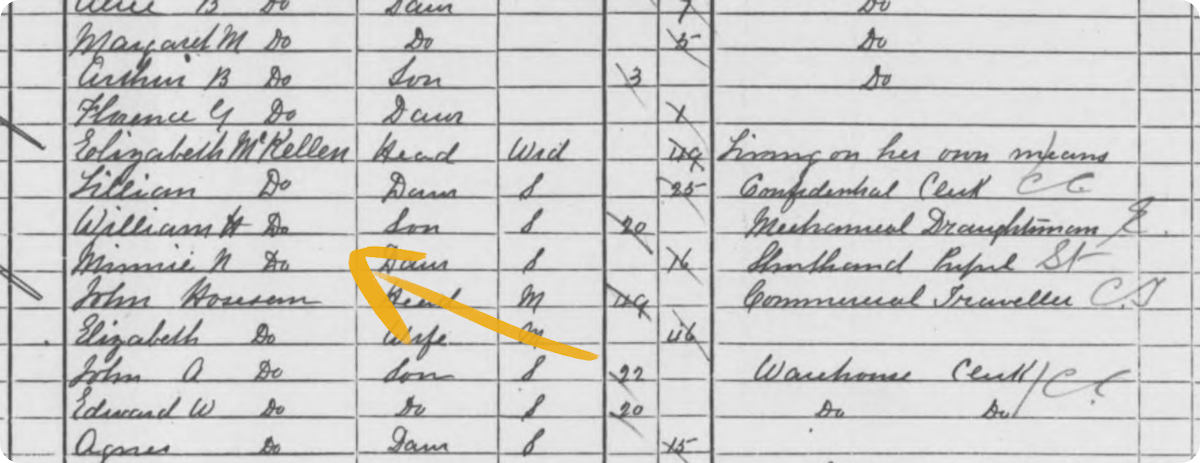 Alice B Do Daur 7 Do
Margaret M Do Do 5 Do
Arthur B Do Son 3 Do
Florence G Do Daur 1
Elizabeth McKellen Head Wid 49 Living on her own means
Lillian Do Daur S 25 Confidential Clerk C C
William H Do Son S 20 Mechanical Draughtsman E.
Minnie N Do Daur S 16 Shorthand Pupil St
John Head M 49 Commercial Traveller C T
Elizabeth Do Wife M 46
John A Do Son S 22 Warehouse Clerk / C. C.
Edward W Do Do S 20 Do Do
Agnes Daur S 15